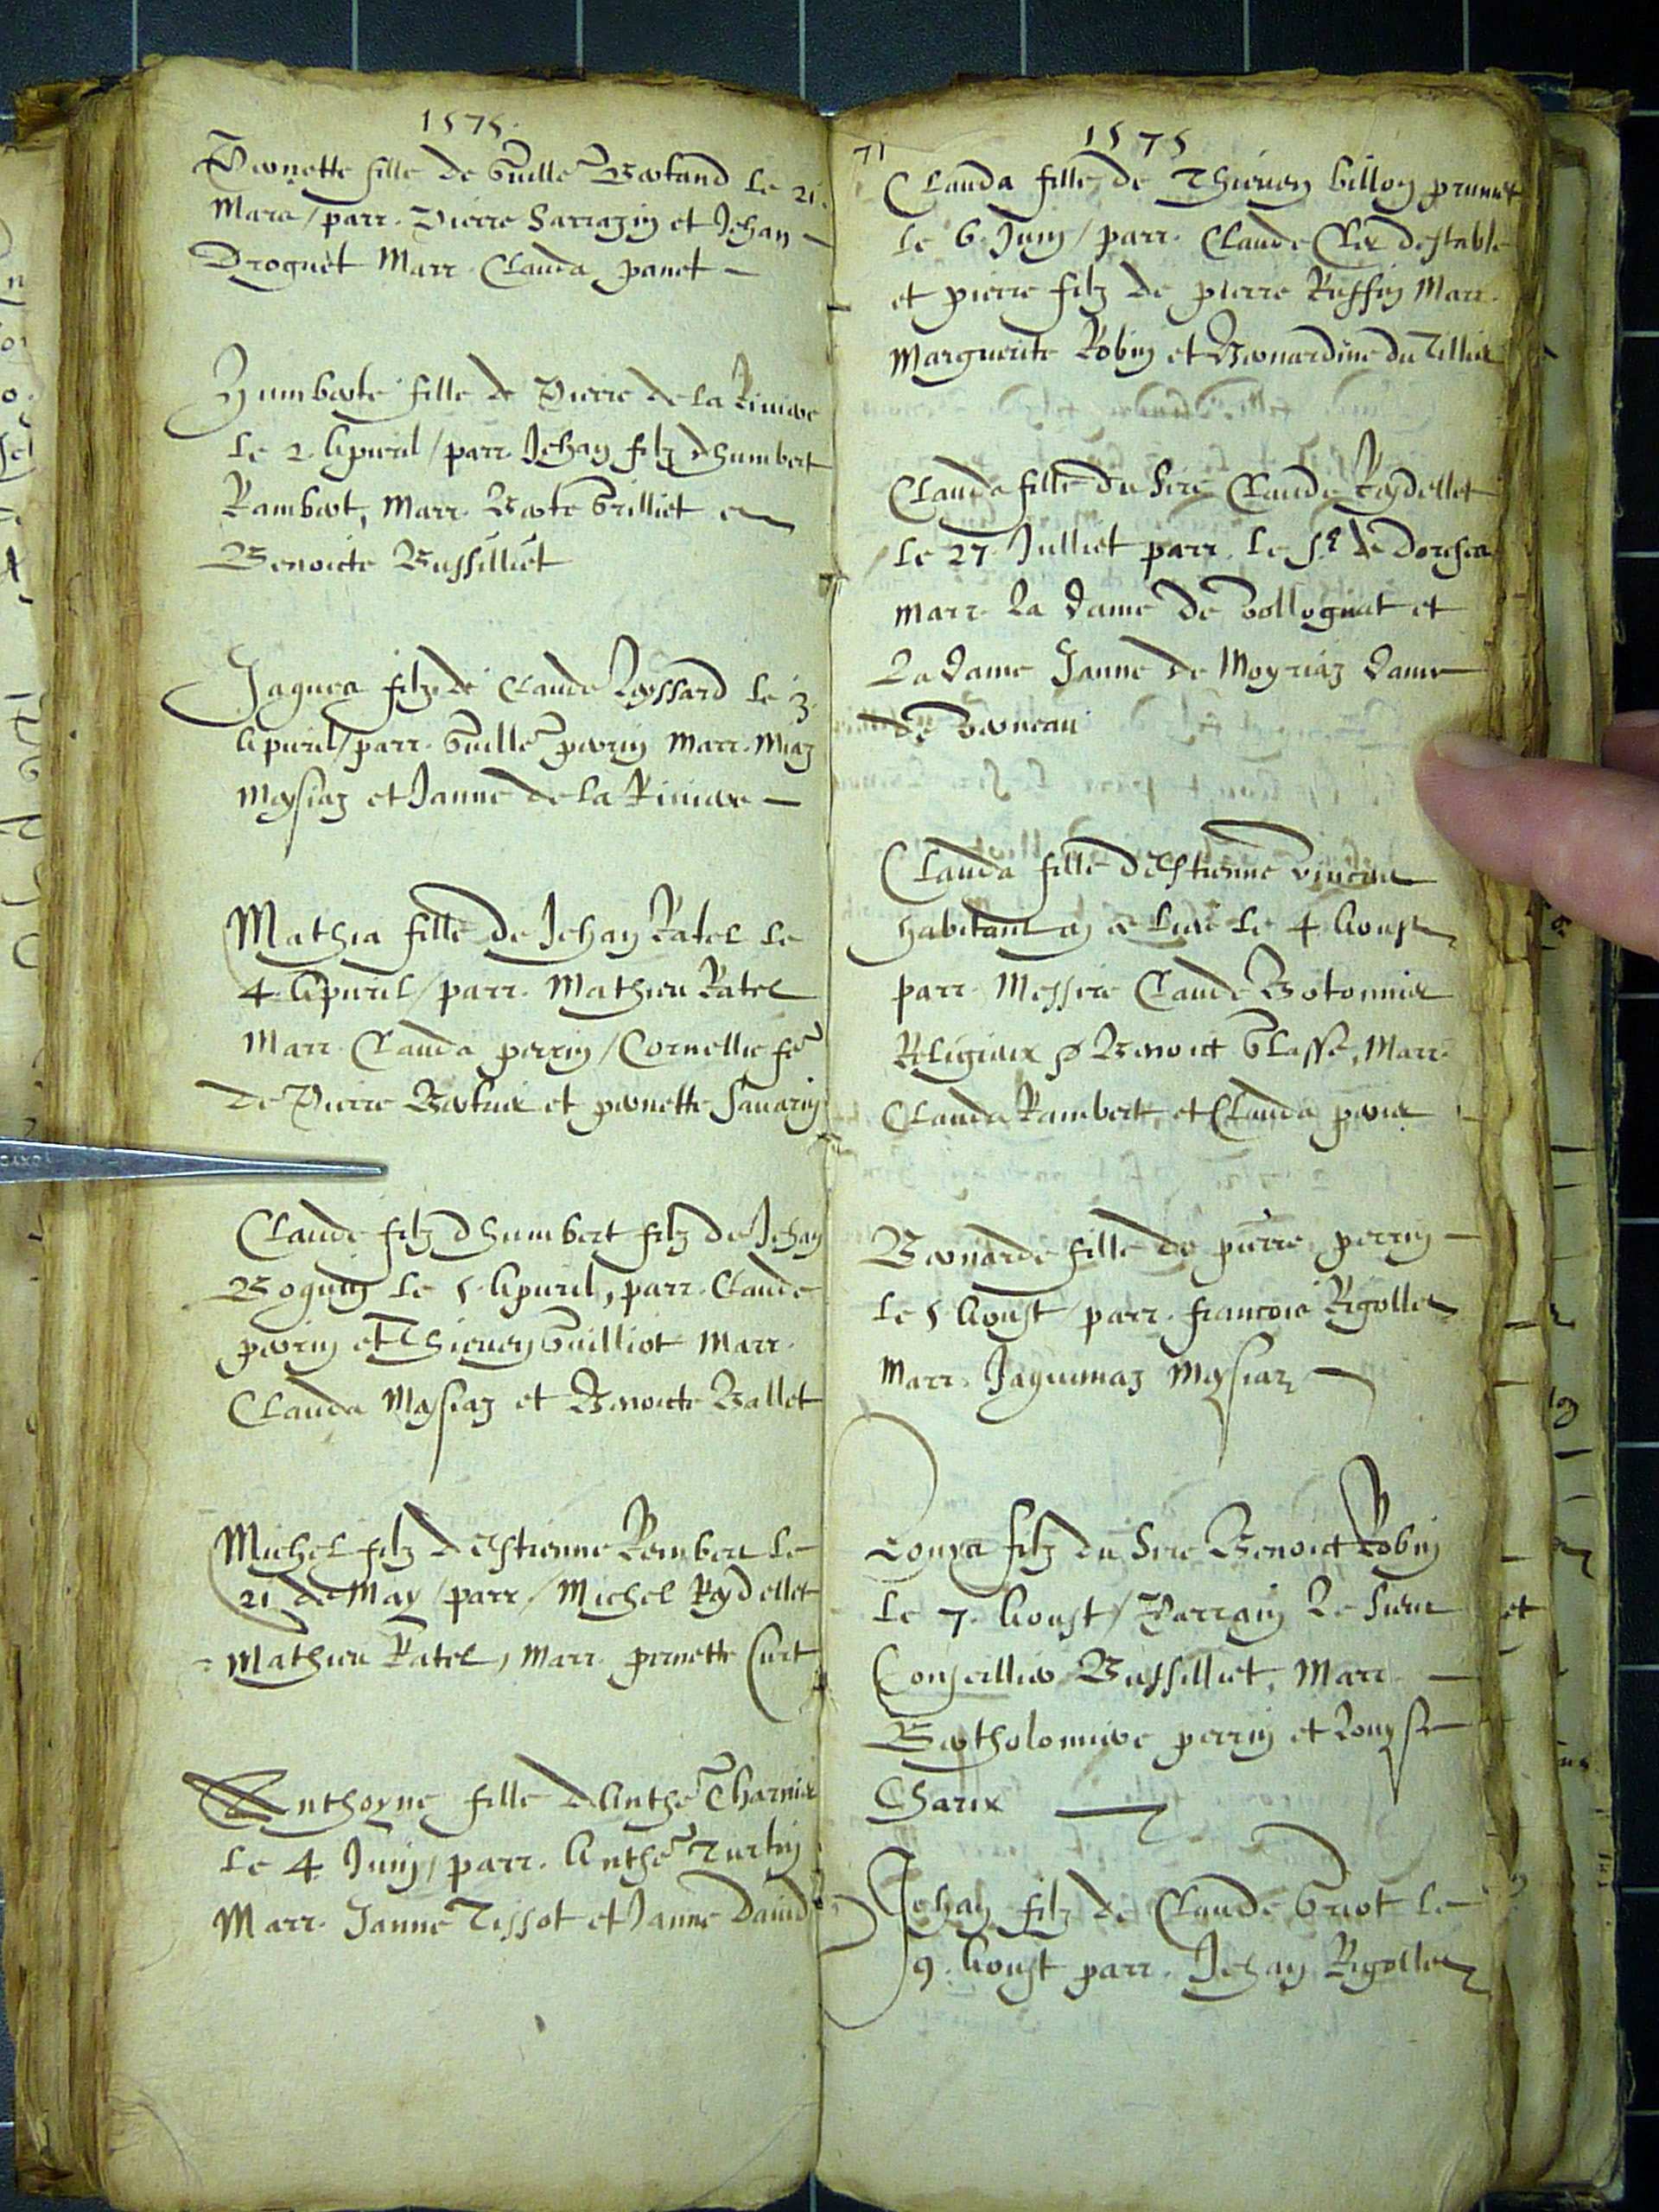 1575.
Pernette fille de Guille Bertand le 21.
Mars / parr. Pierre Sarrazin et Jehan
Droguet Marr. Clauda panet
Humberte fille de Pierre de la Riviere
le 2. Apvril / parr. Jehan filz d'humbert
Rambert, Marr. Berte Grilliet et
Benoicte Bussilliet
Jaques filz de Claude Leyssard le 3.
Apvril / parr. Guille perrin Marr. Miaz
Meysiaz et Janne de la Riviere
Mathia fille de Jehan Ratel le
4. Apvril / parr. Mathieu Ratel
Marr. Clauda perrin / Cornellie fe
de Pierre Bertrier et pernette Savarin
Claude filz d'humbert filz de Jehan
Boguin le 5. Apvril, parr. Claude
perrin et Thieven Guilliot Marr.
Clauda Meysiaz et Benoicte Ballet
Michel filz d'Estienne Rembert le
21 de May / parr / Michel Reydellet
Mathieu Ratel, Marr. pernette Curt
Anthoyne fille d'Anthe Charnier
le 4 Juin / parr. Anthe Turtin
Marr. Janne Tissot et Janne David
71
1575
Clauda fille de Thieven billion
le 6. Juin / parr. Claude
et pierre filz de pierre Ruffin Marr.
Marguerite Robin et Bernardine du Tillier
Clauda fille du Sire Claude Reydellet
le 27. Julliet parr. le Sr de Dorches
marr. La dame de Vollognat et
La dame Janne de Moyriaz dame
de Verneau
Clauda fille d'Estienne
habitant le 4 Aoust
parr. Messire Claude Botonnier
Religieux Benoict Glasse, Marr.
Clauda Rambert, et Clauda
Bernarde fille de pierre perrin
le 5 Aoust / parr. francois Rigollet
Marr. Jaquemaz Meysiaz
Louys filz du Sire Benoict Robin
le 7. Aoust / Parrain Le Sieur
Conseillier Bussilliet, Marr.
Bertholomiere perrin et Louyse
Charix
Jehan filz de Claude Griot le
9. Aoust parr. Jehan Rigollet